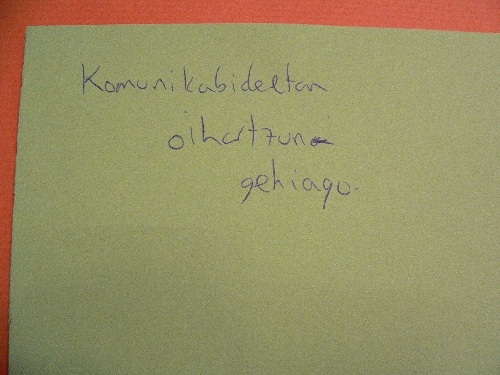 Komunikabideetan
oihartzuna
gehiago.